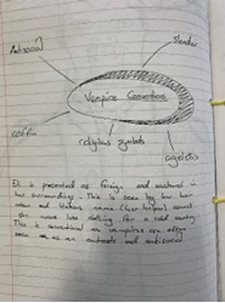 Antisocial
slender
Vampire Conventions
coffin
religious symbols
ageless
It is presented as foreign and unusual in
her surroundings. This is seen by her hair
colour and name
she wears less clothing for a cold country.
This is conventional as vampires are often
seen as an and antisocial